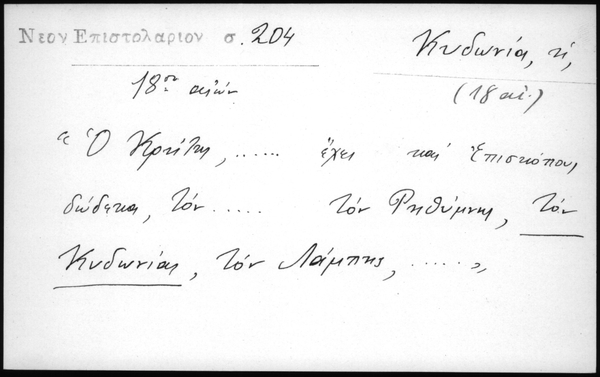 Νεον Επιστολαριον σ. 204
Κυδωνία, ἡ,
18ος αἰών
(18 αἰ.)
“Ὁ Κρήτης, ...... ἔχει καί Ἐπισκόπους
δώδεκα, τόν ...... τόν Ρηθύμνης, τόν
Κυδωνίας, τόν Λάμπης, ...... „